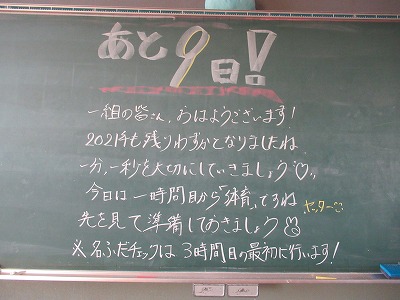 あと9日!
一組の皆さん、おはようございます!
2021年も残りわずかとなりましたね
一分、一秒を大切にしていきましょう♡。
今日は一時間目から「体育」ですね
ヤッター
先を見て準備しておきましょう
※名ふだチェックは3時間目の最初に行います!